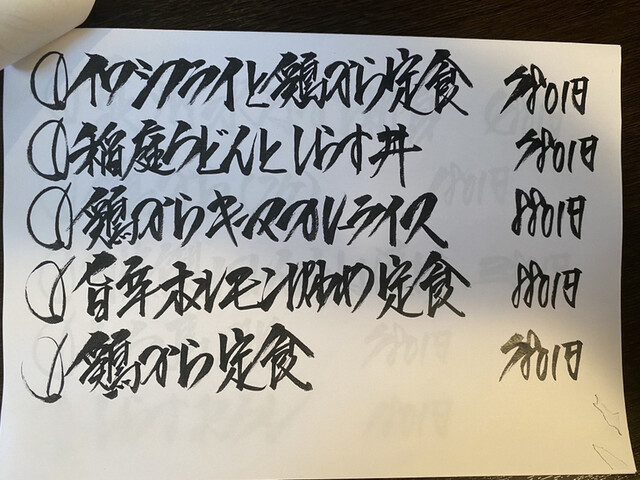 ① イワシフライと鶏から定食 780円
① 稲庭うどんとしらす丼 780円
① 鶏からキーマカレーライス 880円
① 旨辛ホルモン炒め定食 880円
① 鶏から定食 780円